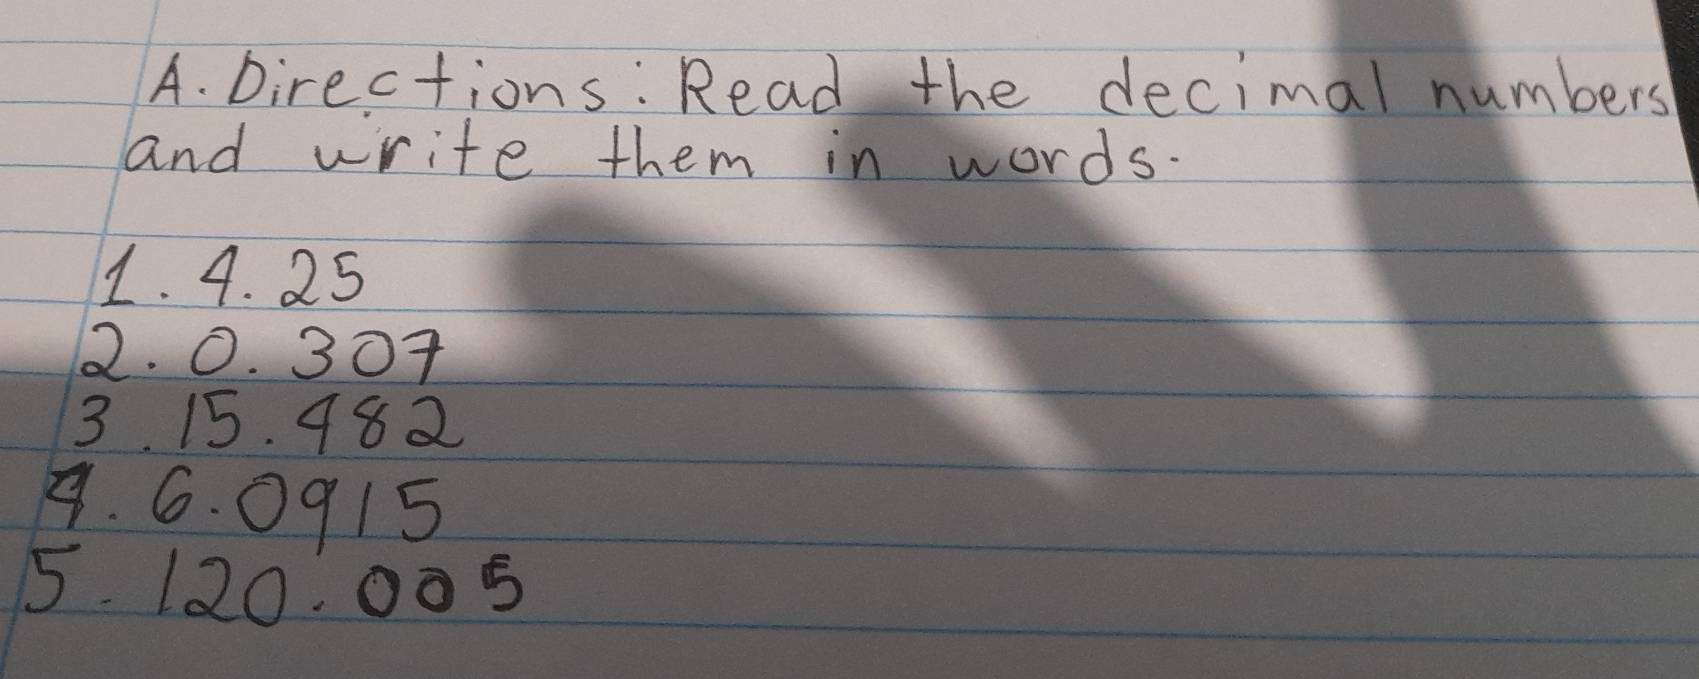 A. Directions: Read the decimal numbers
and write them in words.
1. 4.25
2. 0.307
3. 15.482
4. 6.0915
5. 120.005